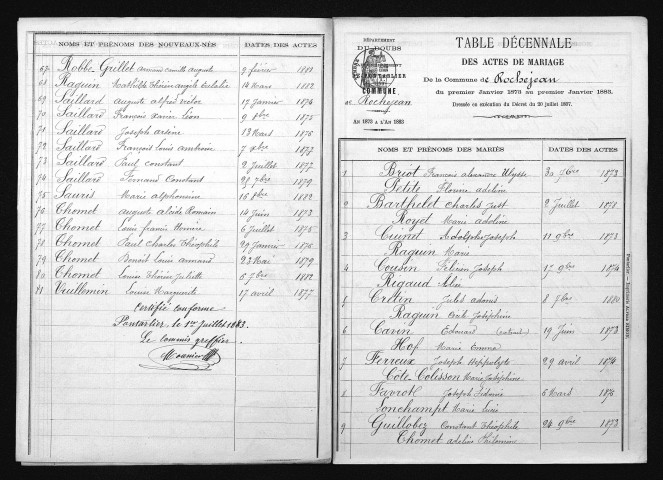 NOMS ET PRÉNOMS DES NOUVEAUX-NÉS DATES DES ACTES
67 Robbe Guillet armand camille auguste 2 février 1881
68 Raguin 14 mars 1882
69 Saillard auguste alfred victor 17 Janvier 1874
70 Saillard François xavier Léon 9 1875
71 Saillard Joseph arsène 13 Mars 1876
72 Saillard François Louis ambroise 7 1877
73 Saillard Paul constant 2 Juillet 1877
74 Saillard Fernand Constant 1879
75 Sauris Marie alphonsine 1882
76 Chomet auguste alcide Romain 14 Juin 1873
77 Chomet Louis francis 6 Juillet 1875
78 Chomet Paul Charles Théophile 29 Janvier 1876
79 Chomet Benoit Louis armand 23 Mai 1879
80 Chomet Juliette 1882
81 Vuillemin Louise Marguerite 17 avril 1877
Certifié conforme
Pontarlier, le 1er Juillet 1883.
Le commis greffier.
DÉPARTEMENT
DU DOUBS
COMMUNE
de Rochejean
AN 1873 A L'AN 1883
TABLE DÉCENNALE
DES ACTES DE MARIAGE
De la Commune de Rochejean
du premier Janvier 1873 au premier Janvier 1883.
Dressée en exécution du Décret du 20 juillet 1807.
NOMS ET PRÉNOMS DES MARIÉS DATES DES ACTES
1 Briot François alexandre Ulysse 30 1873
Petite Florine adeline
2 Barthelet charles Just 2 Juillet 1878
Royet Marie adeline
3 Cuinet Adolphe Joseph 11 9bre 1873
Raguin Marie
4 Cousin Félicien Joseph 17 9bre 1874
Rigaud
5 Cretin Jules 8 1880
Raguin Joséphine
6 Cavin Edouard 19 Juin 1873
Hof Marie Emma
7 Ferreux Joseph Hippolyte 29 avril 1874
Côte Colisson Marie Joséphine
8 Favrot Joseph 5 Mars 1876
Lonchampt Marie
9 Guillobez Constant Théophile 24 9bre 1873
Chomet adeline Philomène